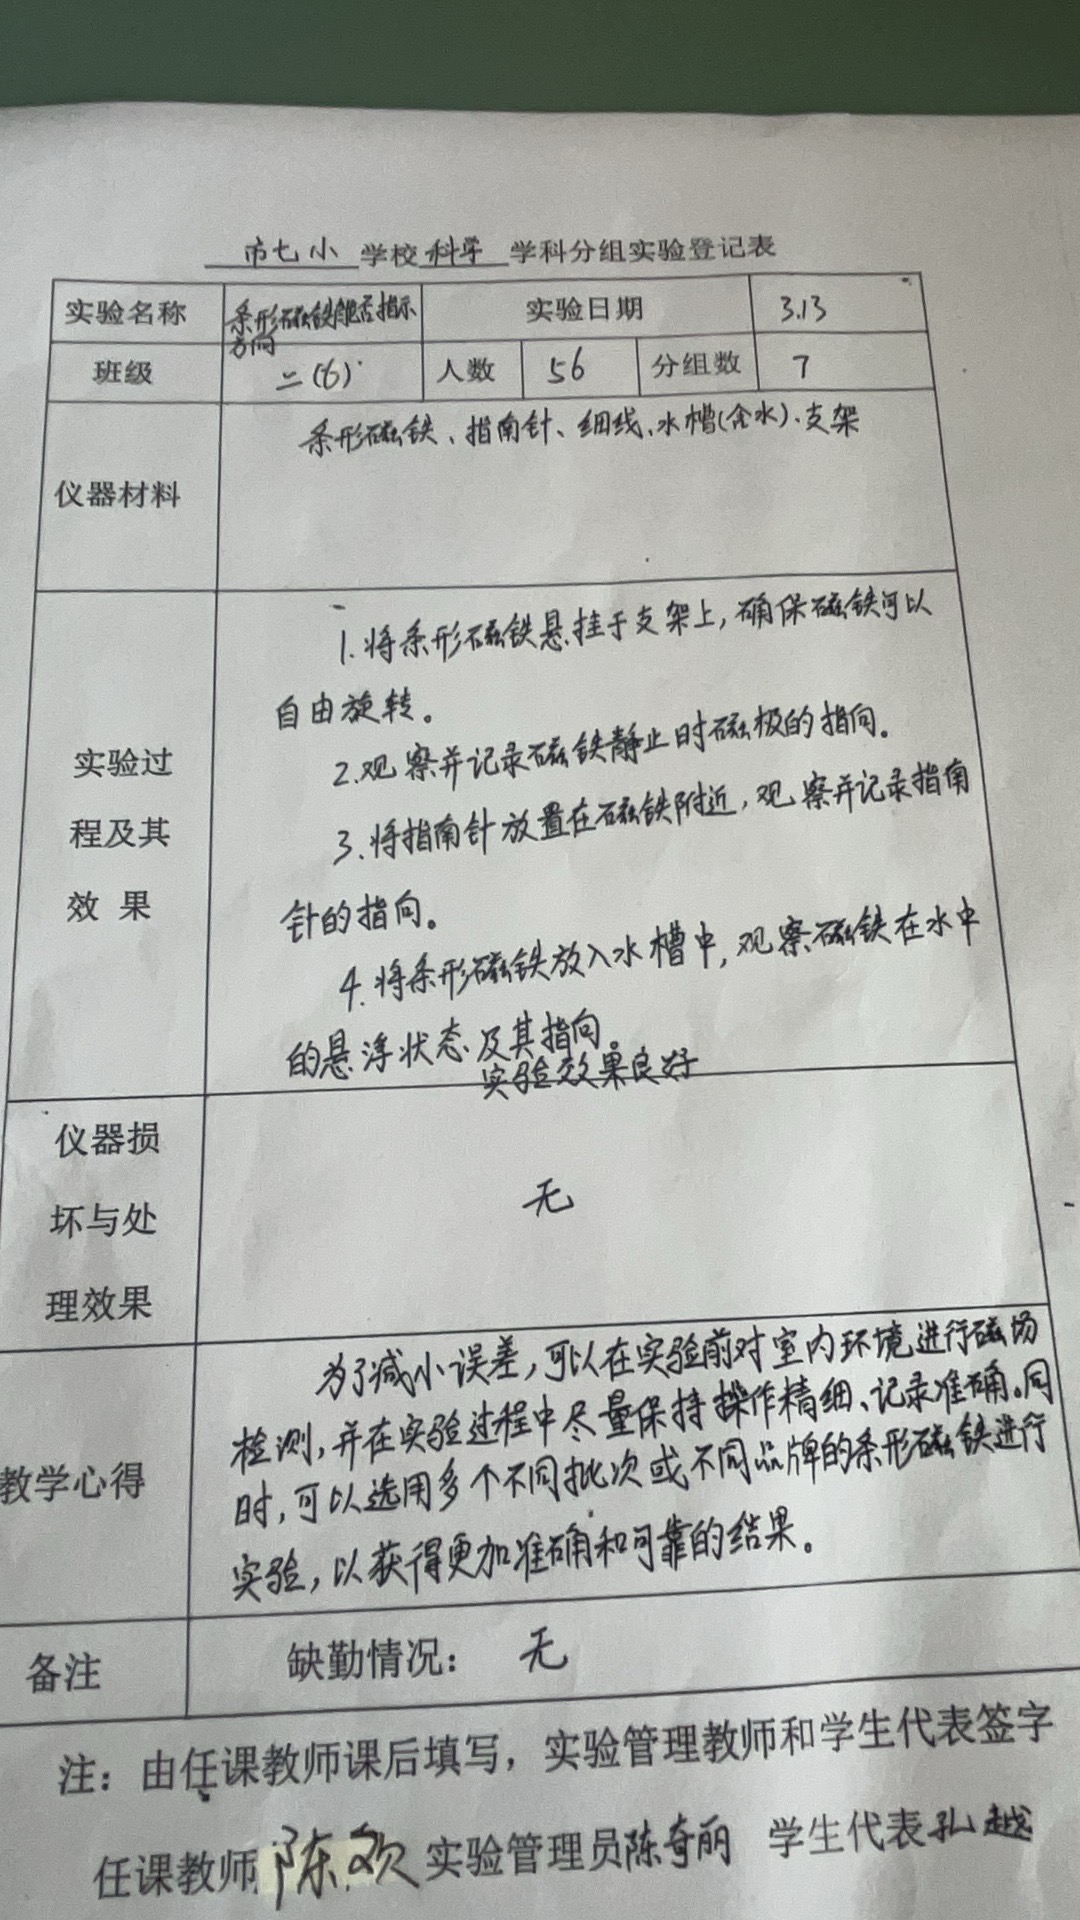 市七小 学校 科学 学科分组实验登记表
实验名称 条形磁铁能否指示方向 实验日期 3.13
班级 二(6) 人数 56 分组数 7
仪器材料 条形磁铁、指南针、细线、水槽(含水)、支架
实验过程及其效果
1.将条形磁铁悬挂于支架上,确保磁铁可以
自由旋转。
2.观察并记录磁铁静止时磁极的指向。
3.将指南针放置在磁铁附近,观察并记录指南
针的指向。
4.将条形磁铁放入水槽中,观察磁铁在水中
的悬浮状态及其指向。
实验效果良好
仪器损坏与处理效果 无
教学心得
为了减小误差,可以在实验前对室内环境进行磁场
检测,并在实验过程中尽量保持操作精细、记录准确。同
时,可以选用多个不同批次或不同品牌的条形磁铁进行
实验,以获得更加准确和可靠的结果。
备注 缺勤情况: 无
注:由任课教师课后填写,实验管理教师和学生代表签字
任课教师 陈欢 实验管理员 陈奇丽 学生代表 孔越